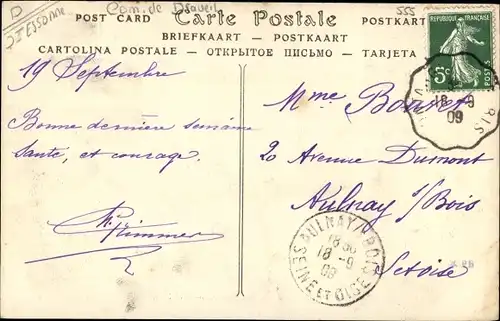 D
D'ESSONNE
Com. de
555
POST CARD Carte Postale POSTKART
BRIEFKAART — POSTKAART
CARTOLINA POSTALE — ОТКРЫТОЕ ПИСЬМО — TARJETA
REPUBLIQUE FRANÇAISE
5c
18 - 9
09
RIS
19 Septembre
Bonne dernière semaine
Santé, et courage.
Mme Bonnet
20 Avenue Dumont
Aulnay s/Bois
Setoise
AULNAY S/ BOIS
18 30
18 - 9
09
SEINE ET OISE